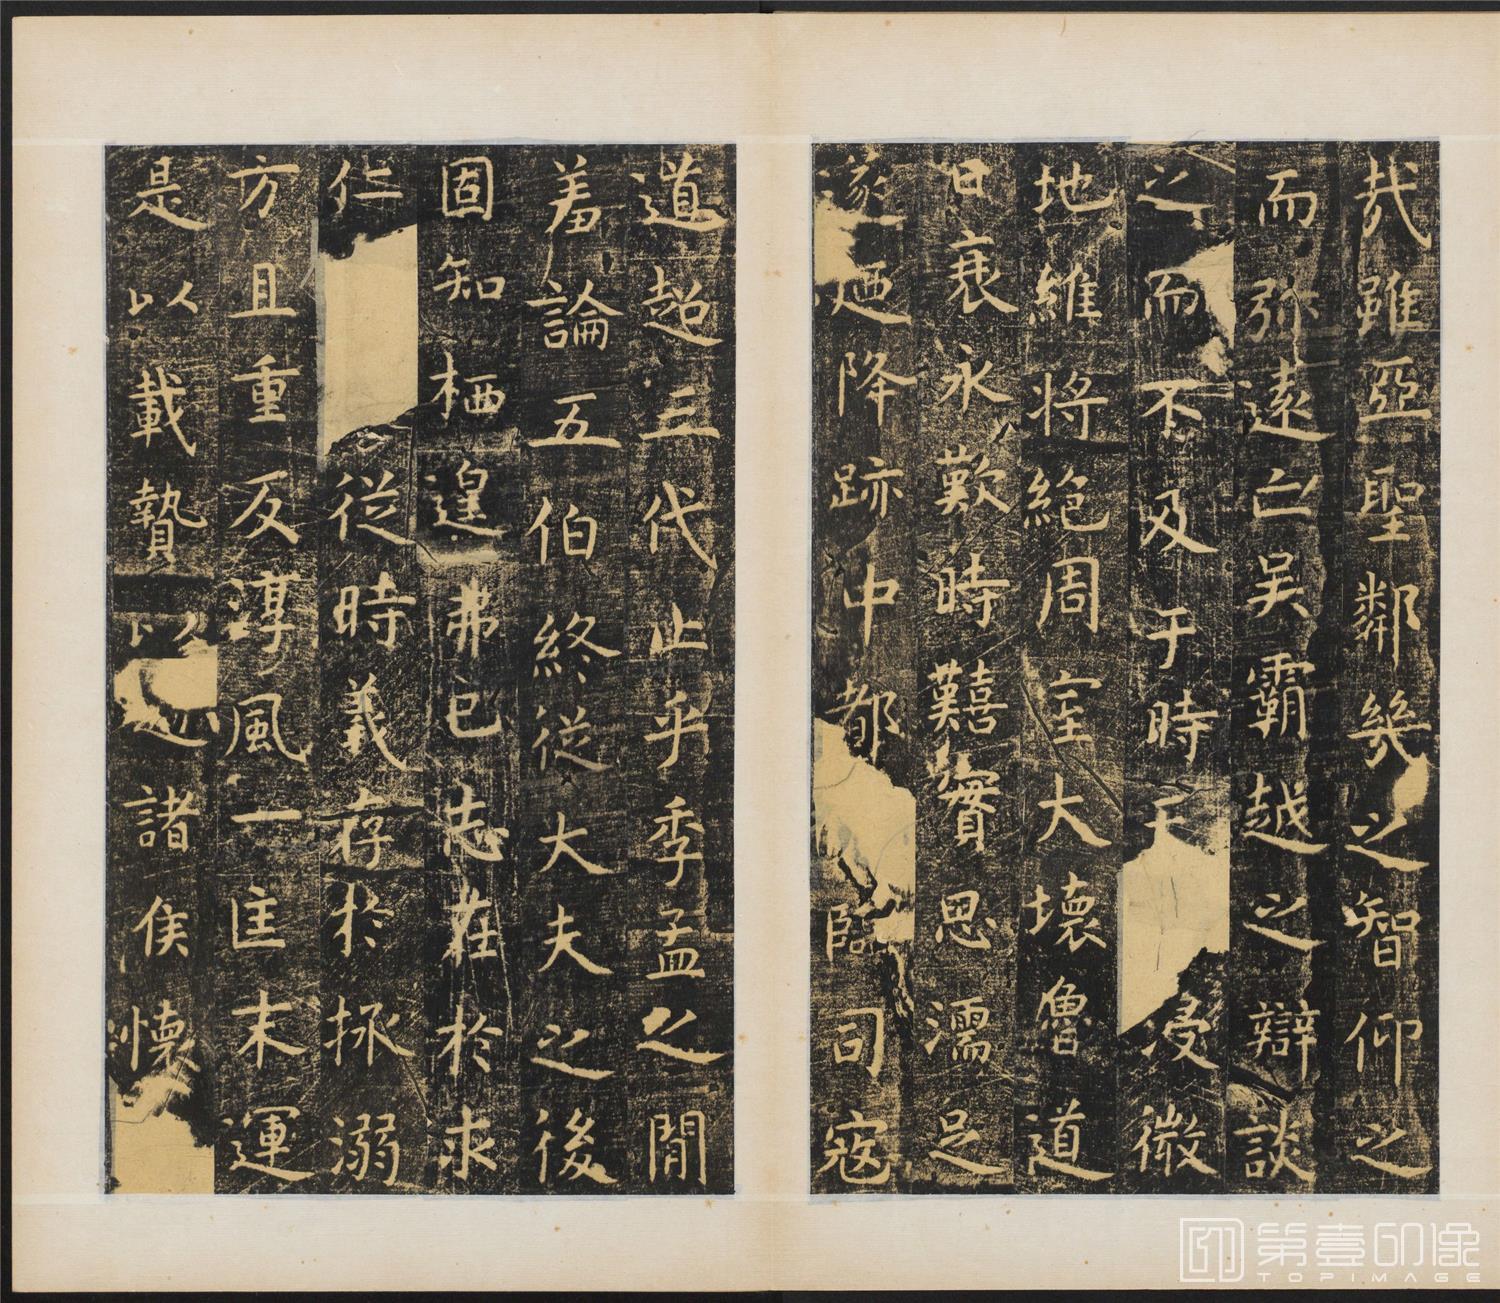 哉雖亞聖鄰幾之智仰之
而弥遠亡吴霸越之辯談
之而不及于時天浸微
地維將絶周室大壞魯道
日衰永歎時艱實思濡足
遂迺降跡中都臨司寇
道超三代止乎季孟之閒
羞論五伯終從大夫之後
固知栖遑弗已志在於求
仁從時義存於拯溺
方且重反淳風一匡末運
是以載贄以諸侯懷
第壹印像
TOPIMAGE